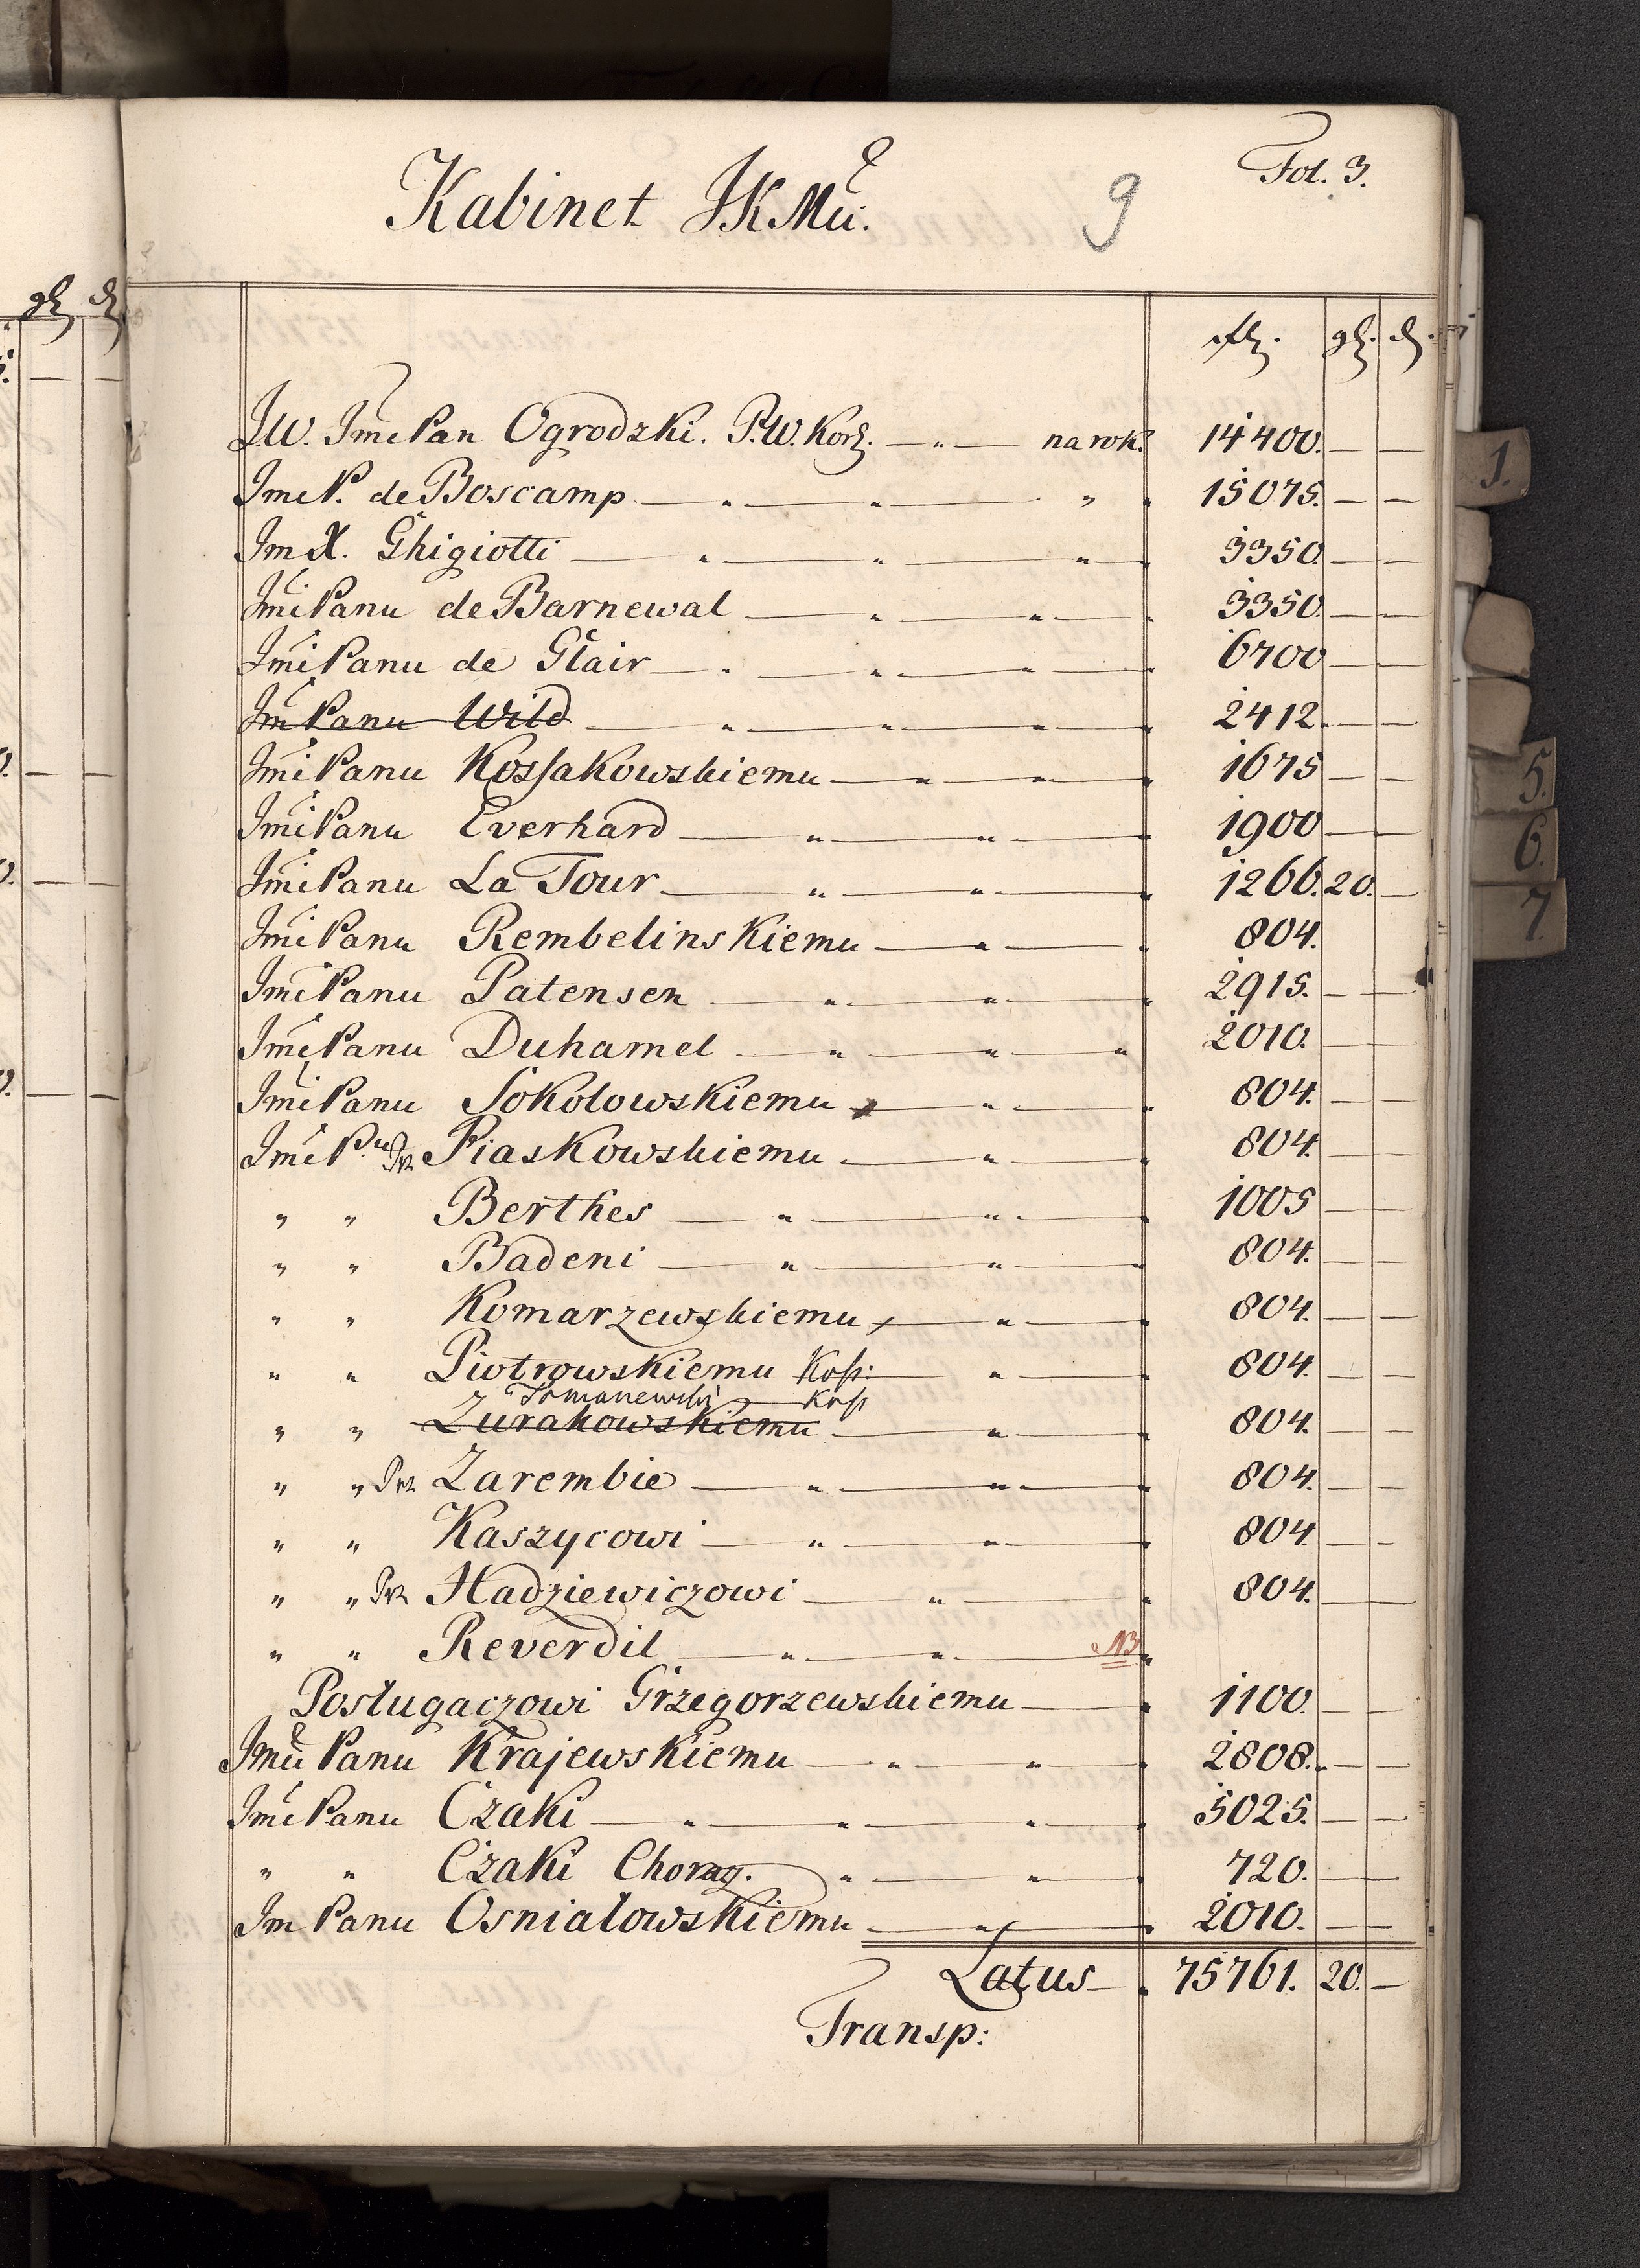 Fol. 3.
Kabinet JKMci. 9
fl. gr. d.
J.W. Jmć Pan Ogrodzki. P.W. Kor. — " — na rok. 14400. — —
Jmć P. de Boscamp — " — " — " 15075. — —
Jm X. Ghigiotti — " — " — " 3350. — —
Jmć Panu de Barnewal — " — " — 3350. — —
Jmć Panu de Glair — " — " — " — 6700 — —
Jm Panu Wild — " — " — " — 2412. — —
Jmć Panu Kossakowskiemu — " — " — 1675 — —
Jmć Panu Everhard — " — " — 1900 — —
Jmć Panu La Tour — " — " — 1266. 20. —
Jmć Panu Rembelinskiemu — " — 804.
Jmć Panu Patensen — " — " — 2915. — —
Jmć Panu Duhamel — " — " — " 2010. — —
Jmć Panu Sokolowskiemu — " — 804. — —
Jmć P.u Prz Piaskowskiemu — " — 804. — —
" " Berthes — " — " — 1005 — —
" " Badeni — " — " — 804. — —
" " Komarzewskiemu — " — 804. — —
" " Piotrowskiemu Koss: — " — 804. — —
Tomanewski — Koss
" " Zurakowskiemu — " — 804. — —
" " Prz Zarembie — " — " — 804. — —
" " Kaszycowi — " — " — 804. — —
" " Prz Hadziewiczowi — " — 804. — —
" " Reverdil — " — " — NB
Posługaczowi Grzegorzewskiemu — 1100. — —
Jmci Panu Krajewskiemu — " — " — 2808. — —
Jmć Panu Czaki — " — " — " — 5025. — —
" " Czaki Chorąg. " — " — 720. — —
Jm Panu Osniałowskiemu — " — 2010. — —
Latus — 75761. 20. —
Transp:
1.
5.
6.
7.